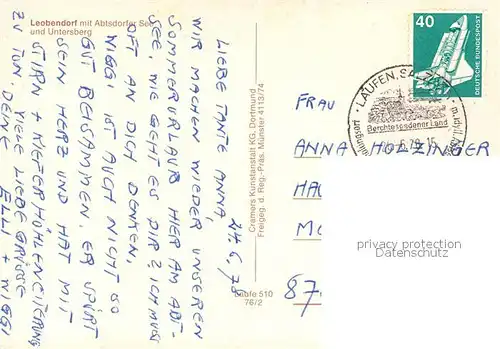 Leobendorf mit Abtsdorfer See
und Untersberg
14.6./78
LIEBE TANTE ANNA,
WIR MACHEN WIEDER UNSEREN
SOMMERURLAUB HIER AM ABT-
SEE, WIE GEHT ES DIR? ICH MUSS
OFT AN DICH DENKEN.
WIGGI IST AUCH NICHT SO
GUT BEISAMMEN. ER SPÜRT
SEIN HERZ UND HAT MIT
STIRN + KIEFERHÖHLENEITERUNG
ZU TUN. VIELE LIEBE GRÜSSE
DEINE ELLI + WIGGI
Cramers Kunstanstalt KG, Dortmund
Freigeg. d. Reg.-Präs. Münster 4113/74
Laufe 510
76/2
40
DEUTSCHE BUNDESPOST
LAUFEN, SALZ
Berchtesgadener Land
FRAU
ANNA HOLZINGER
HA
M
87
privacy protection
Datenschutz